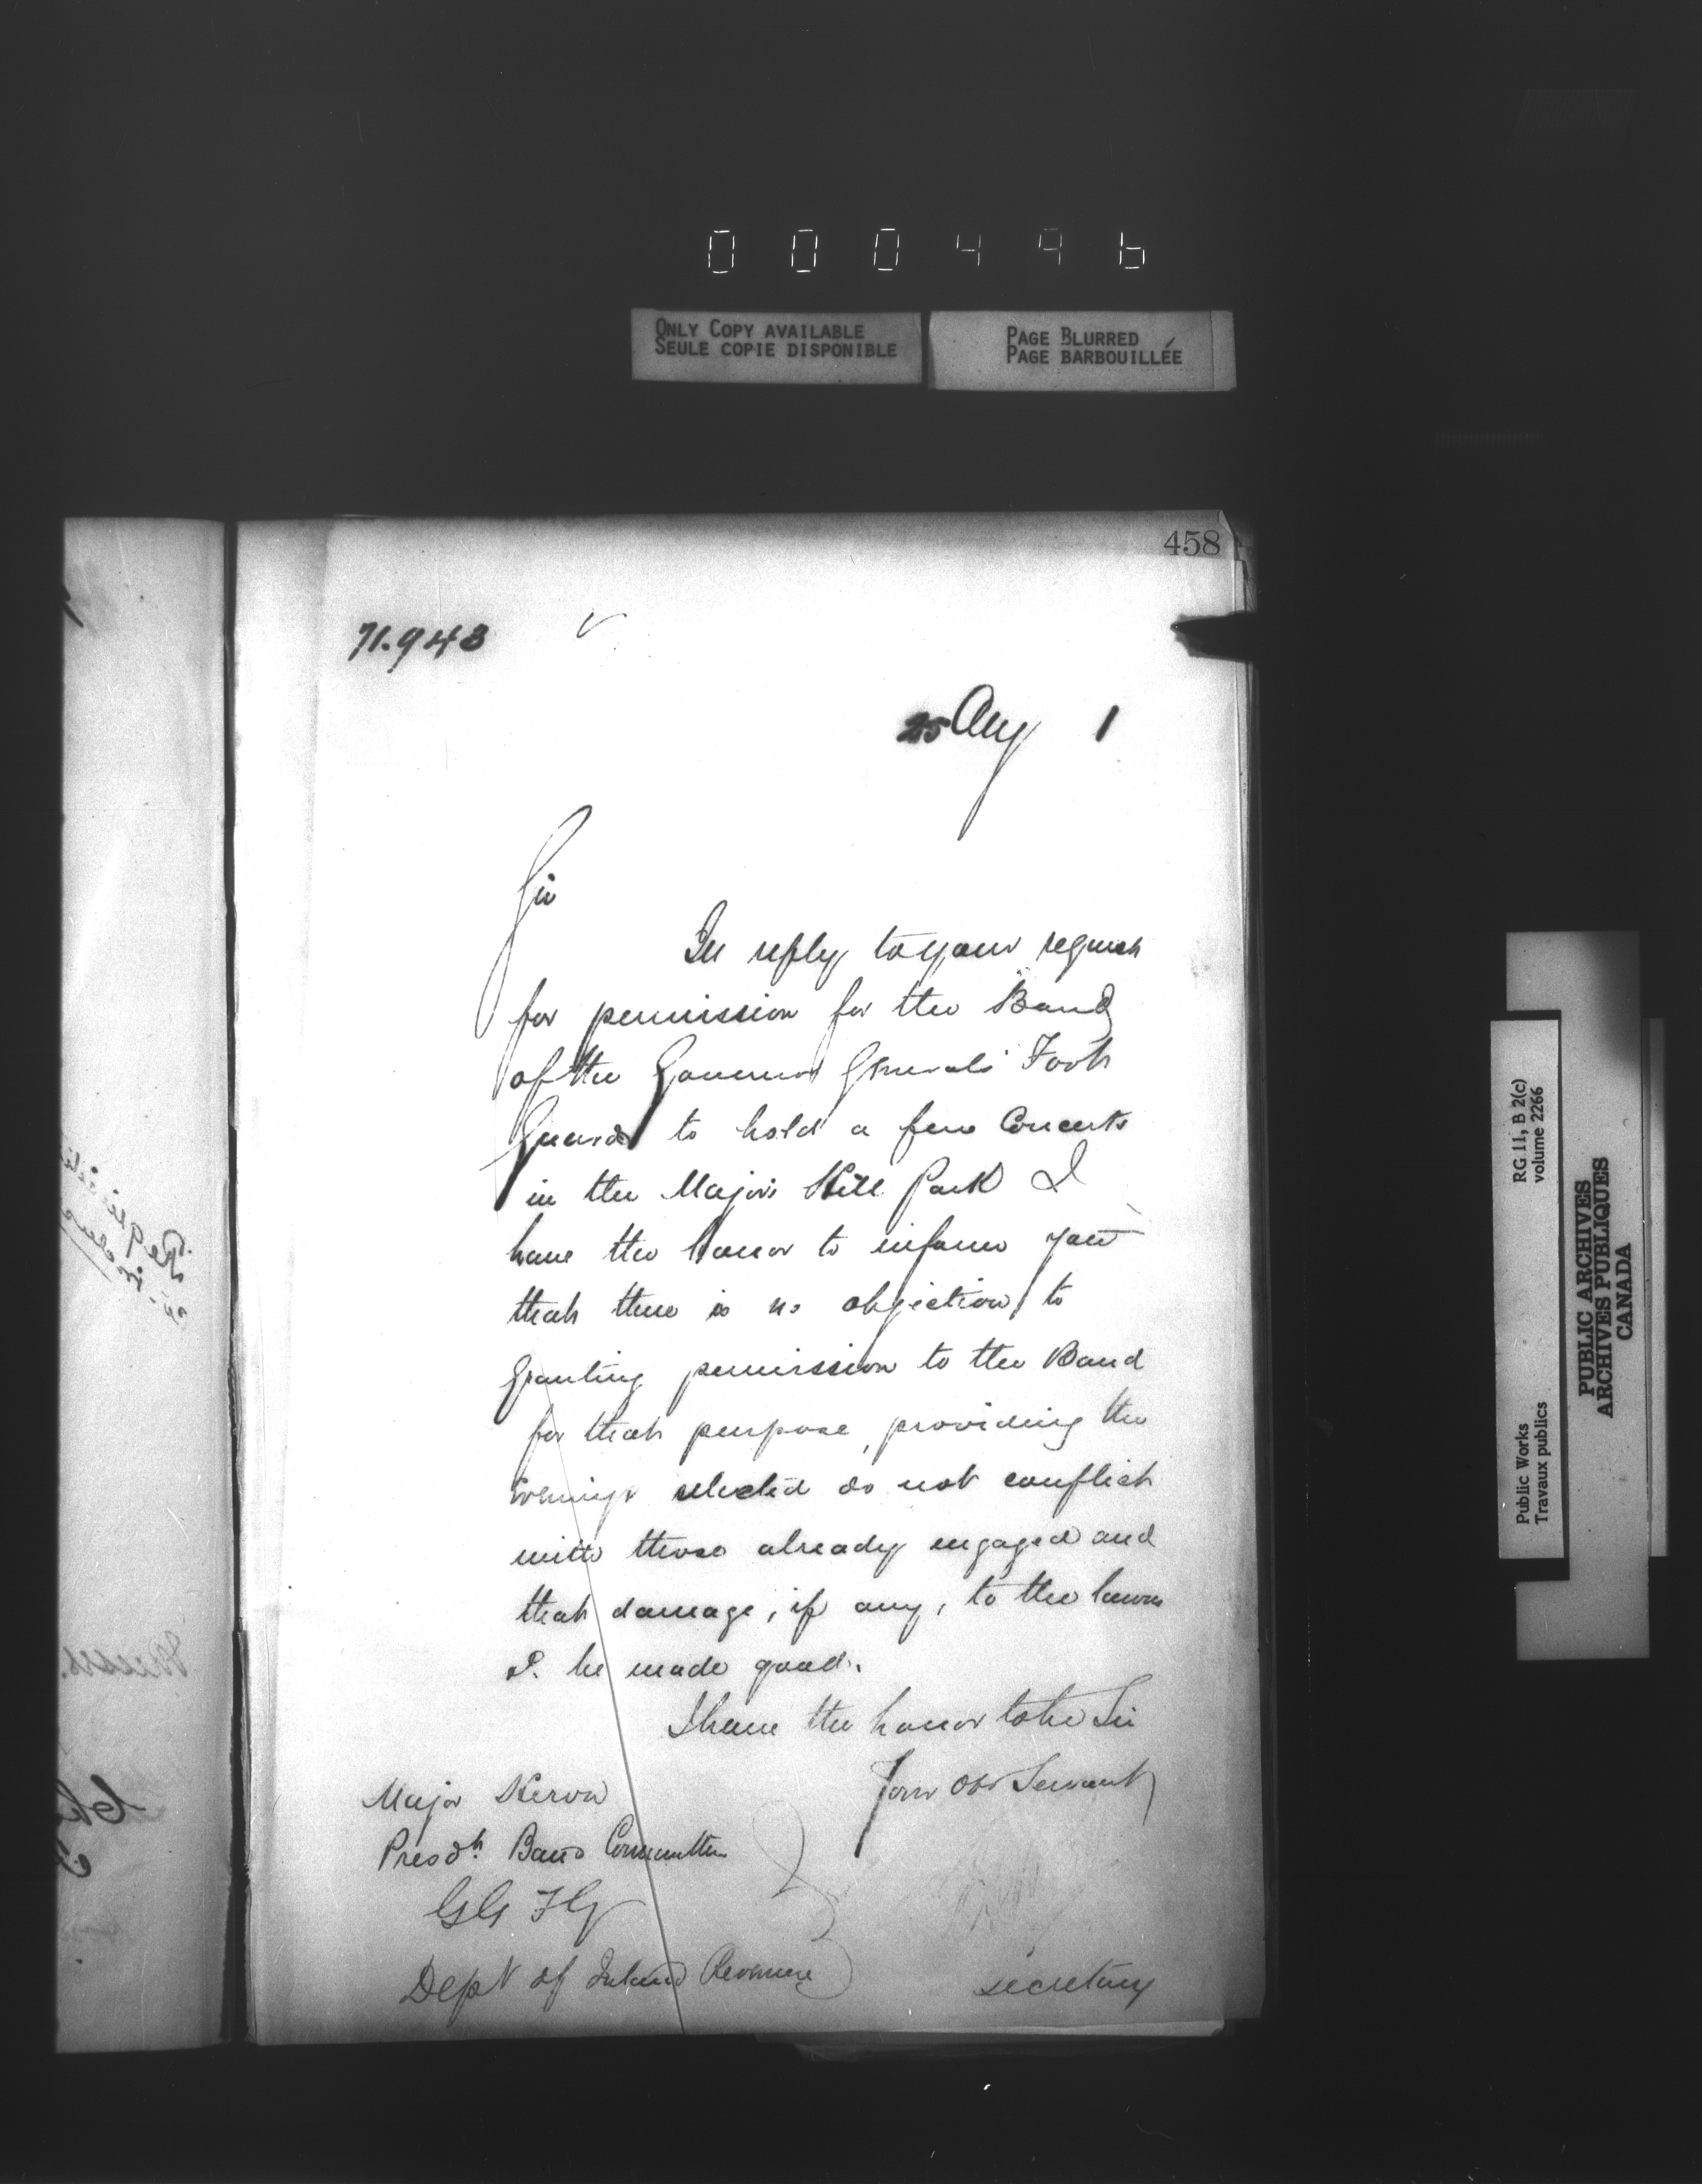 000496
ONLY COPY AVAILABLE
SEULE COPIE DISPONIBLE
PAGE BLURRED
PAGE BARBOUILLÉE
458
71.943
25 Aug 1
Sir
In reply to your request
for permission for the Band
of the Governor Generals Foot
Guards to hold a few Concerts
in the Major's Hill Park I
have the honor to inform you
that there is no objection to
granting permission to the Band
for that purpose, providing the
evenings selected do not conflict
with those already engaged and
that damage, if any, to the lawns
be made good.
I have the honor to be Sir
Your Obt Servant
Major
Presdt. Band Committee
GGFG
Dept of Inland Revenue
Secretary
RG 11, B 2(c)
volume 2266
Public Works
Travaux publics
PUBLIC ARCHIVES
ARCHIVES PUBLIQUES
CANADA